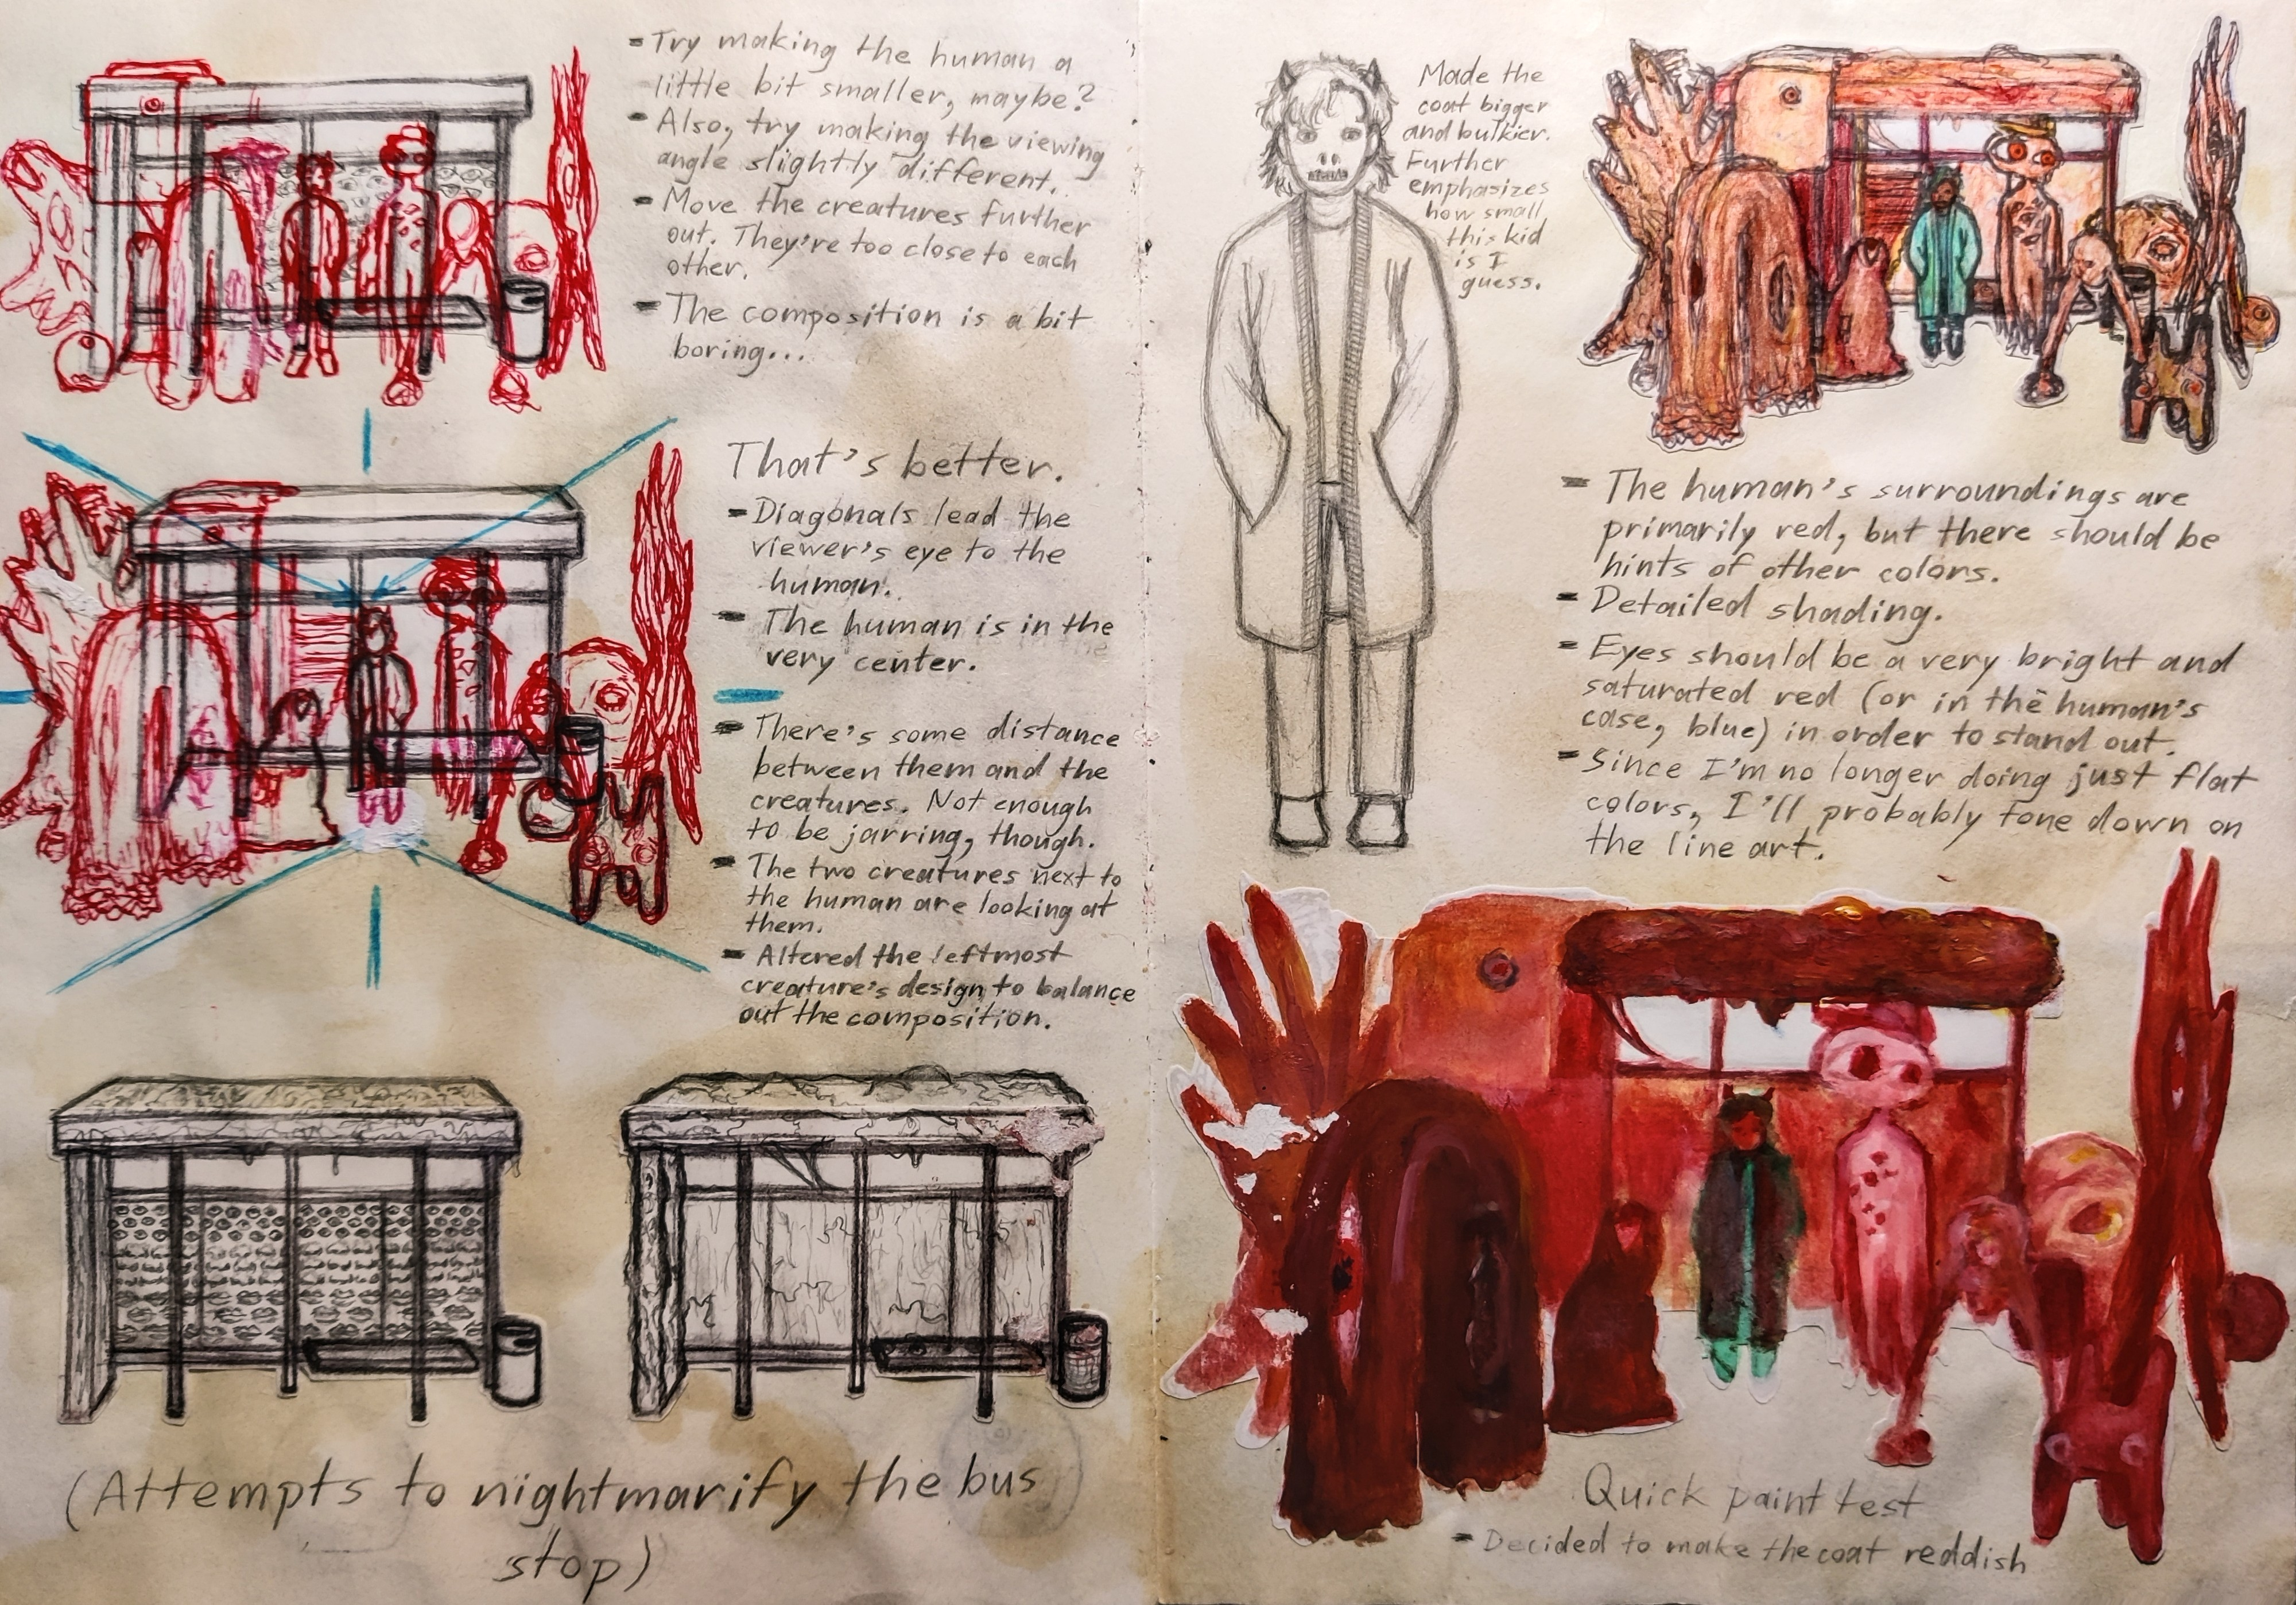 - Try making the human a
little bit smaller, maybe?
- Also, try making the viewing
angle slightly different.
- Move the creatures further
out. They're too close to each
other.
- The composition is a bit
boring...
That's better.
- Diagonals lead the
viewer's eye to the
human.
- The human is in the
very center.
- There's some distance
between them and the
creatures. Not enough
to be jarring, though.
- The two creatures next to
the human are looking at
them.
- Altered the leftmost
creature's design to balance
out the composition.
(Attempts to nightmarify the bus
stop)
Made the
coat bigger
and bulkier.
Further
emphasizes
how small
this kid
is I
guess.
- The human's surroundings are
primarily red, but there should be
hints of other colors.
- Detailed shading.
- Eyes should be a very bright and
saturated red (or in the human's
case, blue) in order to stand out.
- Since I'm no longer doing just flat
colors, I'll probably tone down on
the line art.
Quick paint test
- Decided to make the coat reddish